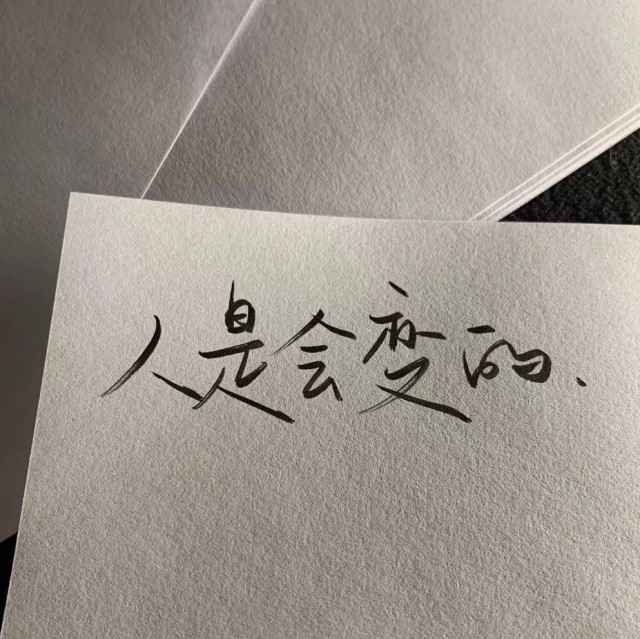 人是会变的.